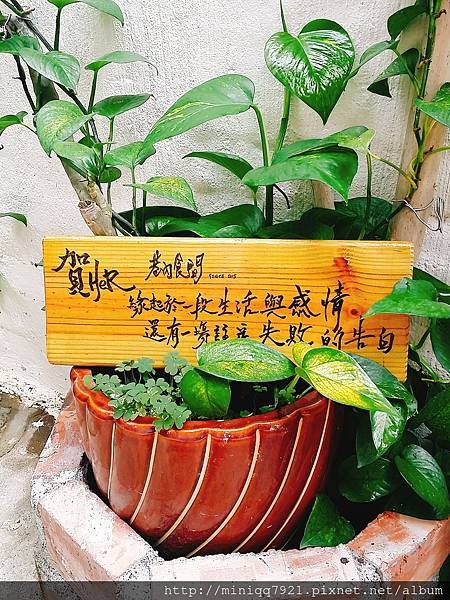 賀 巷內食間
since 2015
緣起於一段生活與感情
還有一場註定失敗的告白
http://miniqq7921.pixnet.net/album